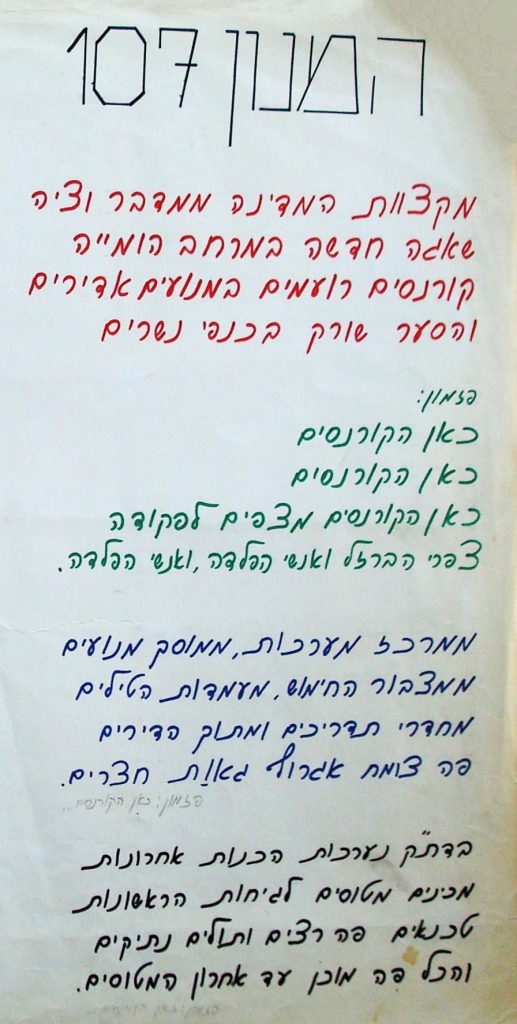 המנון 107
מקצוות המדינה ממדבר וציה
שאגה חדשה במרחב הומייה
קורנסים רועמים במנועים אדירים
והסער שורק בכנפי נשרים
פזמון:
כאן הקורנסים
כאן הקורנסים
כאן הקורנסים מצפים לפקודה
צפרי הברזל ואנשי הפלדה, ואנשי הפלדה.
ממרכז מערכות, ממוסק מנועים
ממצבור החימוש, מעמדות הטילים
מחדרי תדריכים ומתוק הדירים
פה צומח אגרוף גאוַת חצרים.
פזמון: כאן הקורנסים...
בדת"ק נערכות הכנות אחרונות
מכינים מטוסים לגיחות הראשונות
טכנאים פה רצים ותולים נתיקים
והכל פה מוכן עד אחרון המטוסים.